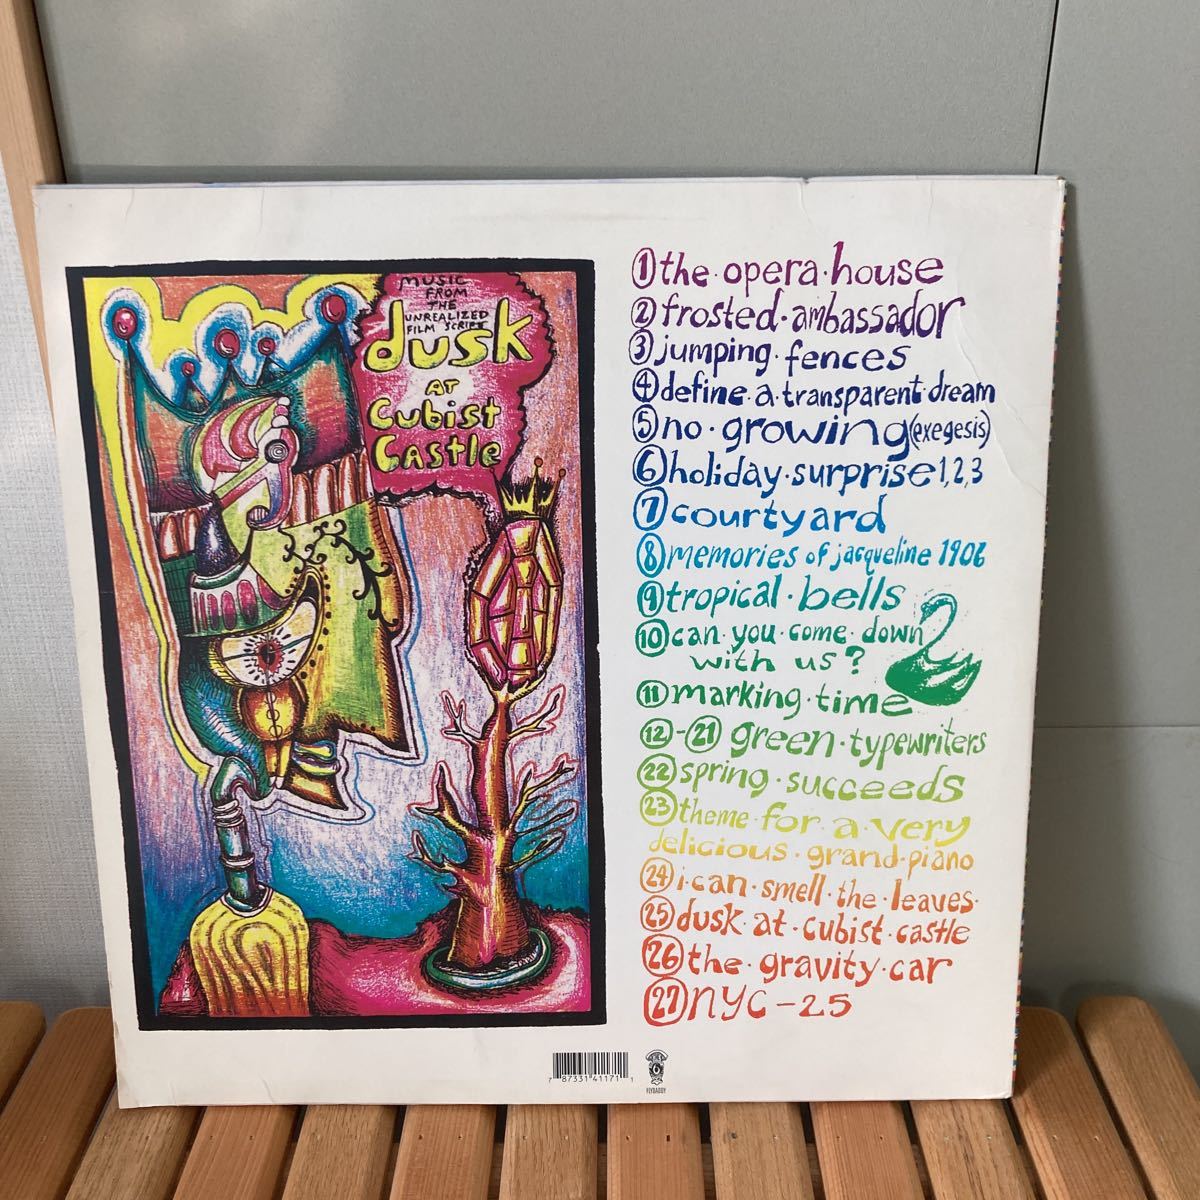 MUSIC
FROM
THE
UNREALIZED
FILM SCRIPT
dusk
AT
Cubist
Castle
1 the·opera·house
2 frosted·ambassador
3 jumping·fences
4 define·a·transparent·dream
5 no·growing(exegesis)
6 holiday·surprise 1,2,3
7 courtyard
8 memories of jacqueline 1906
9 tropical·bells
10 can·you·come·down
with us?
11 marking·time
12-21 green·typewriters
22 spring·succeeds
23 theme·for·a·very
delicious·grand·piano
24 i·can·smell·the·leaves·
25 dusk·at·cubist·castle
26 the·gravity·car
27 NYC-25
7 87331 41171 1
FLYDADDY